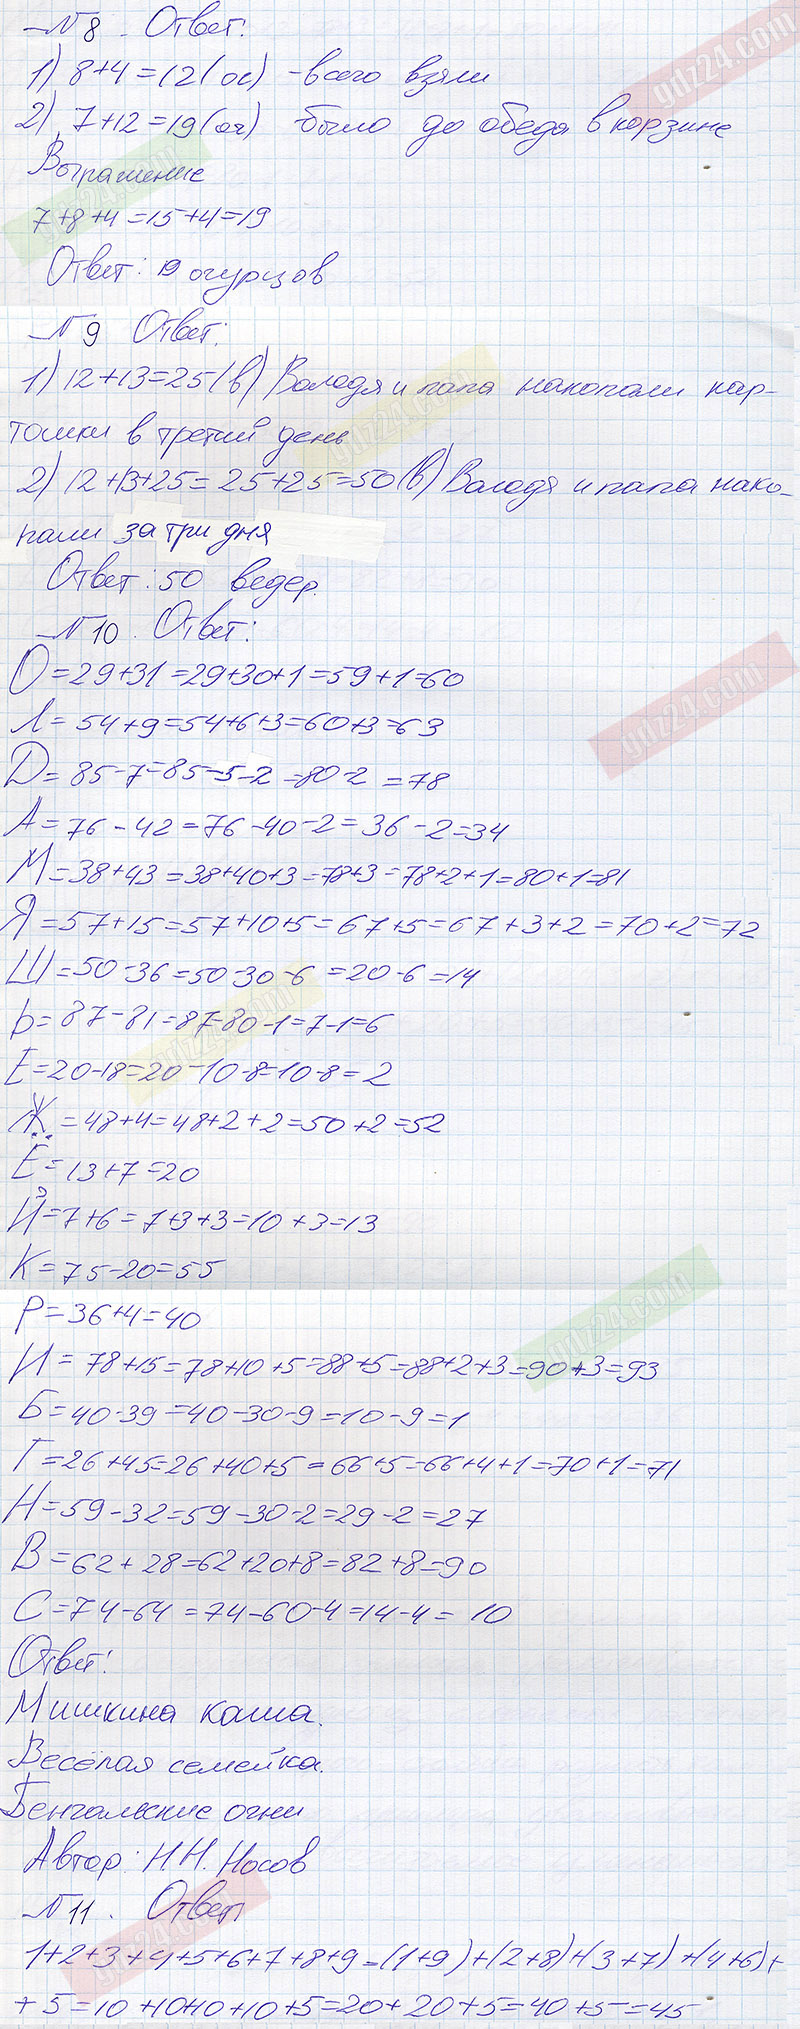 №8. Ответ:
1) 8+4=12(ог) -всего взяли
2) 7+12=19(ог) было до обеда в корзине
Выражение
7+8+4=15+4=19
Ответ: 19 огурцов
№9 Ответ:
1) 12+13=25(в) Володя и папа накопали кар-
тошки в третий день
2) 12+13+25=25+25=50(в) Володя и папа нако-
пали за три дня
Ответ: 50 ведер.
№10. Ответ:
О=29+31=29+30+1=59+1=60
Л=54+9=54+6+3=60+3=63
Д=85-7=85-5-2=80-2=78
А=76-42=76-40-2=36-2=34
М=38+43=38+40+3=78+3=78+2+1=80+1=81
Я=57+15=57+10+5=67+5=67+3+2=70+2=72
Ш=50-36=50-30-6=20-6=14
Ь=87-81=87-80-1=7-1=6
Е=20-18=20-10-8=10-8=2
Ж=48+4=48+2+2=50+2=52
Ё=13+7=20
Й=7+6=7+3+3=10+3=13
К=75-20=55
Р=36+4=40
И=78+15=78+10+5=88+5=88+2+3=90+3=93
Б=40-39=40-30-9=10-9=1
Г=26+45=26+40+5=66+5=66+4+1=70+1=71
Н=59-32=59-30-2=29-2=27
В=62+28=62+20+8=82+8=90
С=74-64=74-60-4=14-4=10
Ответ:
Мишкина каша.
Весёлая семейка.
Бенгальские огни
Автор: Н.Н. Носов
№11. Ответ
1+2+3+4+5+6+7+8+9=(1+9)+(2+8)+(3+7)+(4+6)+
+5=10+10+10+10+5=20+20+5=40+5=45
gdz24.com
gdz24.com
gdz24.com
gdz24.com
gdz24.com
gdz24.com
gdz24.com